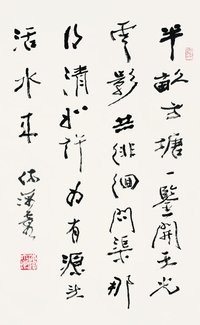 半畝方塘一鑒開天光
雲影共徘徊問渠那
得清如許為有源頭
活水來